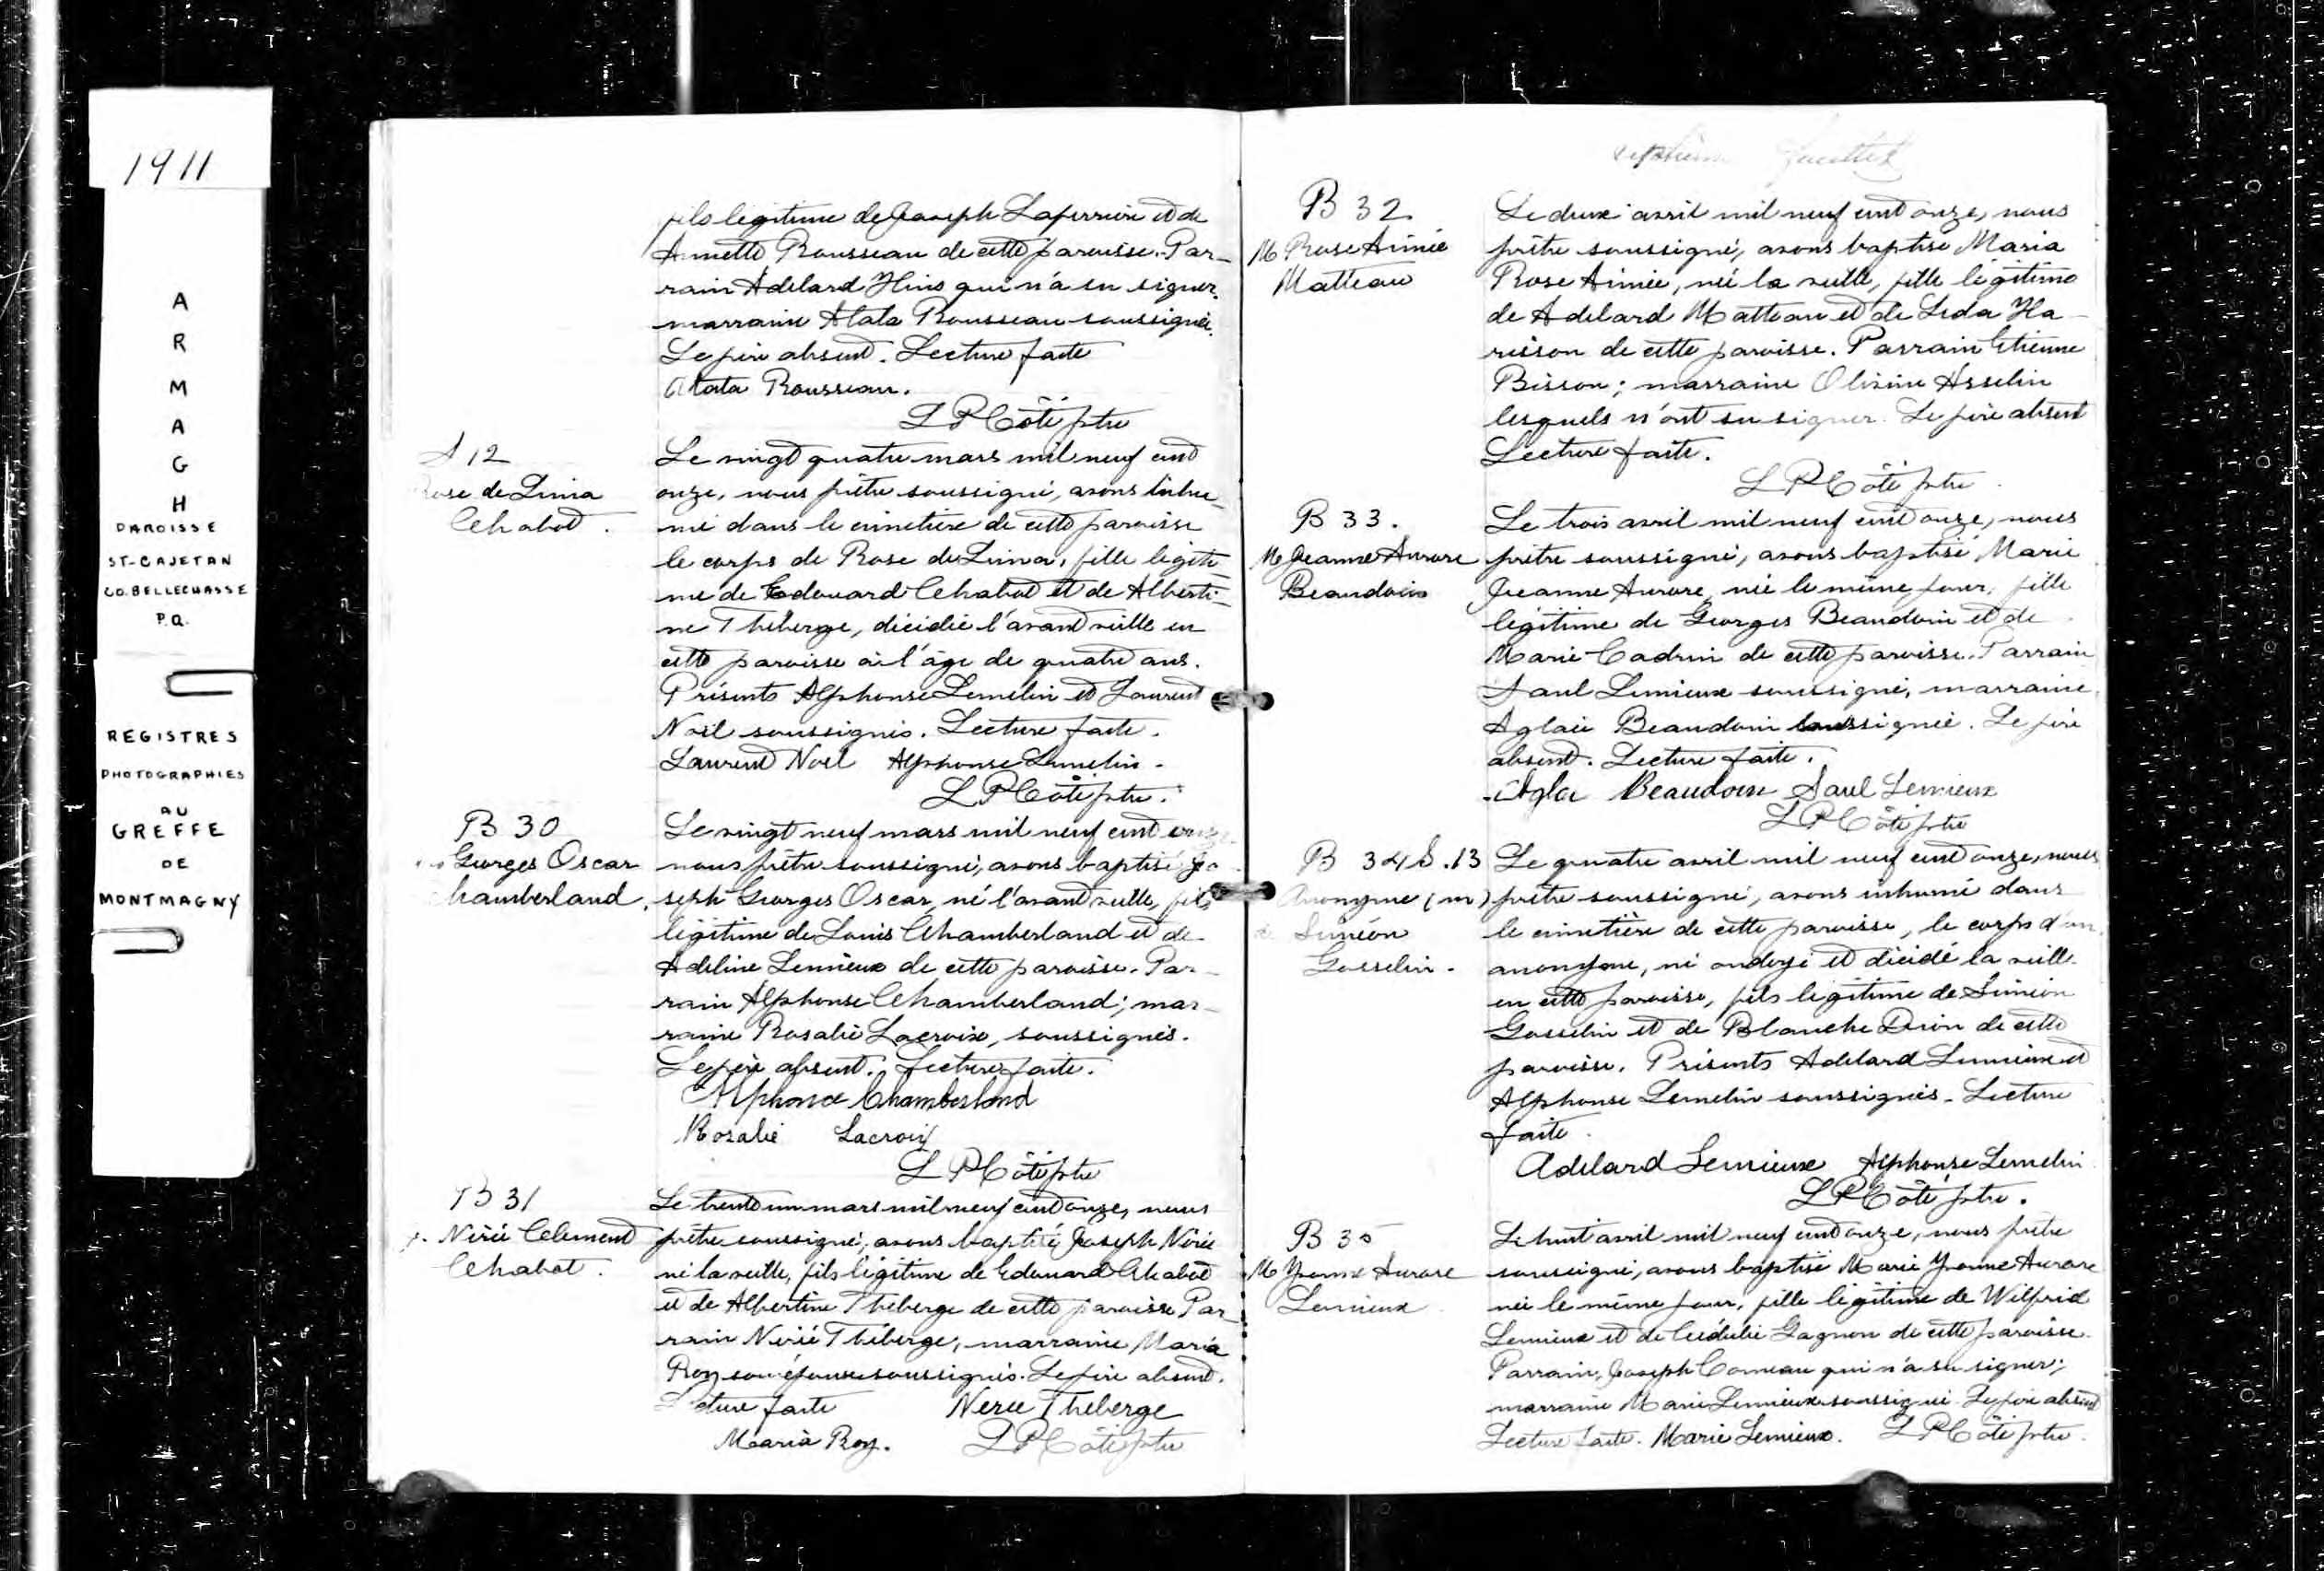 1911
A
R
M
A
G
H
PAROISSE
ST-CAJETAN
CO. BELLECHASSE
P.Q.
REGISTRES
PHOTOGRAPHIES
AU
GREFFE
DE
MONTMAGNY
fils legitime de Joseph Laferrière et de
Annette Rousseau de cette paroisse. Par-
rain Adelard Hins qui n'a su signer,
marraine Atala Rousseau soussignée.
Le père absent. Lecture faite
Atala Rousseau.
L P Côté ptre
S 12
Rose de Lima
Chabot.
Le vingt quatre mars mil neuf cent
onze, nous prêtre soussigné, avons inhu-
mé dans le cimetière de cette paroisse
le corps de Rose de Lima, fille légiti
me de Edouard Chabot et de Alberti-
ne Théberge, décédée l'avant veille en
cette paroisse à l'âge de quatre ans.
Présents Alphonse Lemelin et Laurent
Noël soussignés. Lecture faite.
Laurent Noël Alphonse Lemelin.
L P Côté ptre.
B 30
Georges Oscar
Chamberland.
Le vingt neuf mars mil neuf cent onze
nous prêtre soussigné, avons baptisé Jo
seph Georges Oscar, né l'avant veille, fils
légitime de Louis Chamberland et de
Adeline Lemieux de cette paroisse. Par-
rain Alphonse Chamberland; mar-
raine Rosalie Lacroix, soussignés.
Le père absent. Lecture faite.
Alphonse Chamberland
Rosalie Lacroix
L P Côté ptre
B 31
J. Nérée Clement
Chabot.
Le trente un mars mil neuf cent onze, nous
prêtre soussigné, avons baptisé Joseph Nérée
né la veille, fils légitime de Edouard Chabot
et de Albertine Théberge de cette paroisse Par-
rain Nerée Théberge, marraine Maria
Roy son épouse soussignés. Le père absent.
Lecture faite Neree Theberge
Maria Roy. L P Côté ptre
B 32
M Rose Aimée
Matteau
Le deux avril mil neuf cent onze, nous
prêtre soussigné, avons baptisé Maria
Rose Aimée, née la veille, fille légitime
de Adelard Matteau et de Leda Ha-
risson de cette paroisse. Parrain Etienne
Bisson; marraine Olivine Asselin
lesquels n'ont su signer. Le père absent
Lecture faite.
L P Côté ptre.
B 33.
M Jeanne Aurore
Beaudoin
Le trois avril mil neuf cent onze, nous
prêtre soussigné, avons baptisé Marie
Jeanne Aurore, née le même jour, fille
légitime de Georges Beaudoin et de
Marie Cadrin de cette paroisse. Parrain
Saul Lemieux soussigné, marraine
Aglaée Beaudoin soussignée. Le père
absent. Lecture faite.
Aglae Beaudoin Saul Lemieux
L P Côté ptre
B 34 S.13
Anonyme (m)
de Siméon
Gosselin.
Le quatre avril mil neuf cent onze, nous
prêtre soussigné, avons inhumé dans
le cimetière de cette paroisse, le corps d'un
anonyme, né ondoyé et décédé la veille
en cette paroisse, fils légitime de Siméon
Gosselin et de Blanche Dion de cette
paroisse. Présents Adelard Lemieux et
Alphonse Lemelin soussignés. Lecture
faite.
Adelard Lemieux Alphonse Lemelin
L P Côté ptre.
B 35
M Yvonne Aurore
Lemieux
Le huit avril mil neuf cent onze, nous prêtre
soussigné, avons baptisé Marie Yvonne Aurore
née le même jour, fille légitime de Wilfrid
Lemieux et de Cédulie Gagnon de cette paroisse.
Parrain, Joseph Comeau qui n'a su signer;
marraine Marie Lemieux soussignée. Le père absent
Lecture faite. Marie Lemieux. L P Côté ptre.